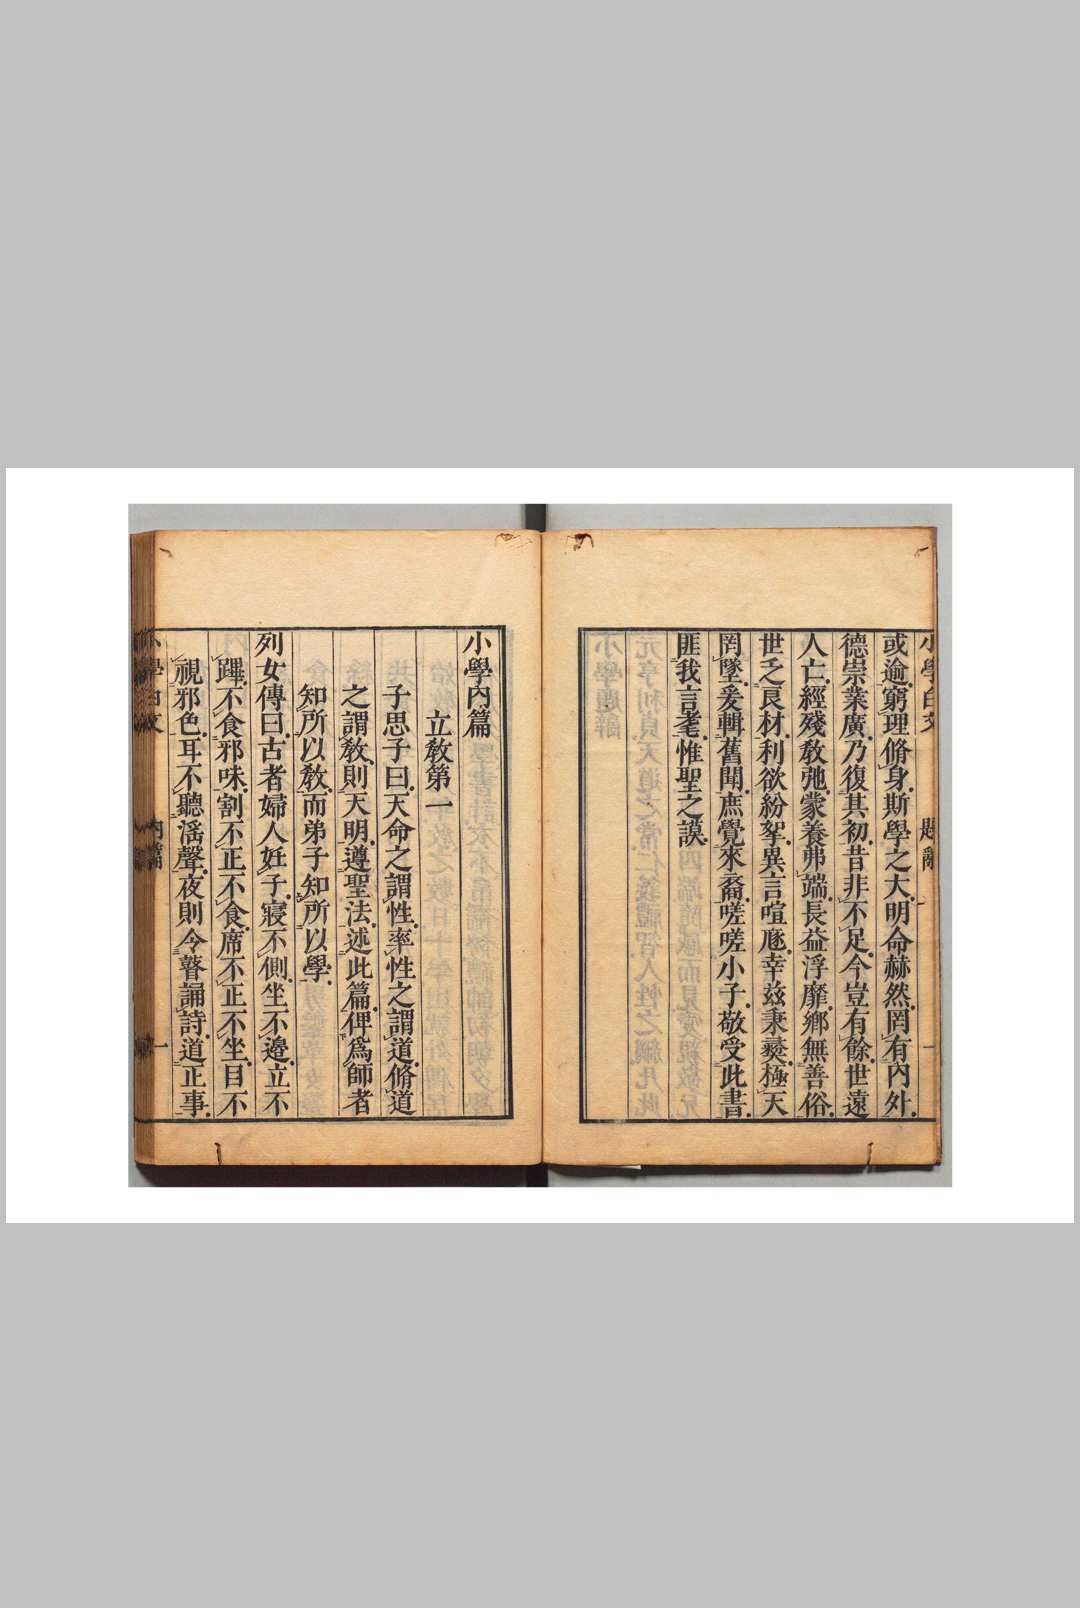 小學白文　題辭　一
或逾窮理脩身斯學之大明命赫然罔有內外
德崇業廣乃復其初昔非不足今豈有餘世遠
人亡經殘敎弛蒙養弗端長益浮靡鄉無善俗
世乏良材利欲紛拏異言喧豗幸玆秉彝極天
罔墜爰輯舊聞庶覺來裔嗟嗟小子敬受此書
匪我言耄惟聖之謨
小學內篇
立敎第一
子思子曰天命之謂性率性之謂道脩道
之謂敎則天明遵聖法述此篇俾爲師者
知所以敎而弟子知所以學
列女傳曰古者婦人妊子寢不側坐不邊立不
蹕不食邪味割不正不食席不正不坐目不
視邪色耳不聽淫聲夜則令瞽誦詩道正事
小學白文　內篇　一